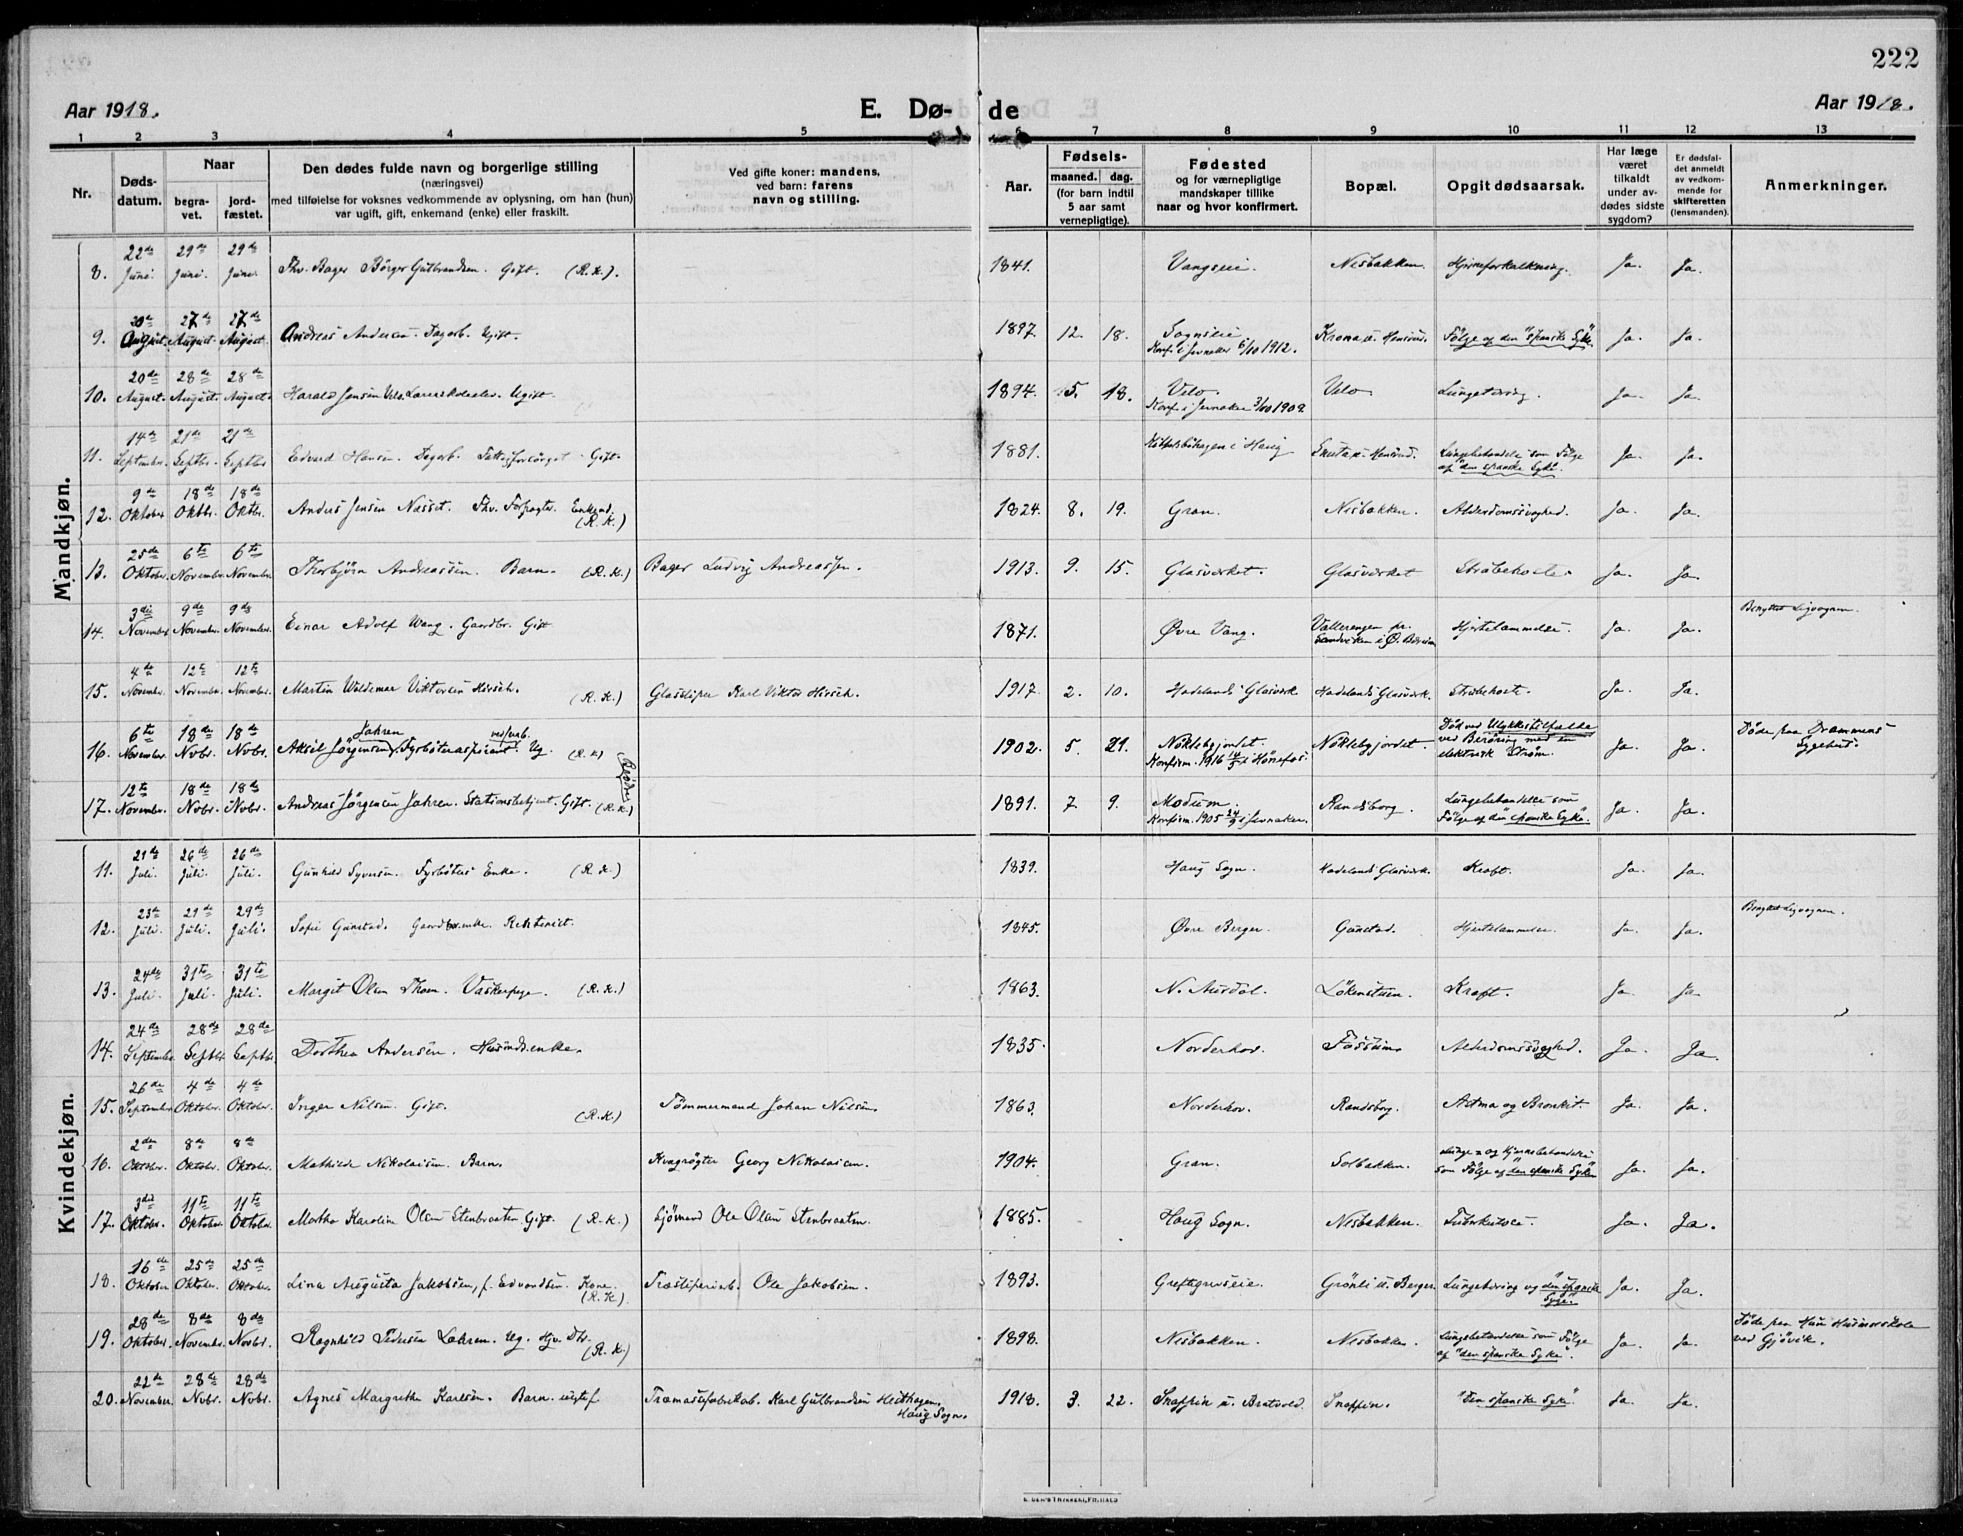 222
Aar 1918.
E. Dø- de
Aar 1918.
1 2 3 4 5 6 7 8 9 10 11 12 13
Nr.
Døds-
datum.
Naar
begra-
vet.
jord-
fæstet.
Den dødes fulde navn og borgerlige stilling
(næringsvei)
med tilføielse for voksnes vedkommende av oplysning, om han (hun)
var ugift, gift, enkemand (enke) eller fraskilt.
Ved gifte koner: mandens,
ved barn: farens
navn og stilling.
Aar.
Fødsels-
maaned. dag.
(for barn indtil
5 aar samt
vernepligtige).
Fødested
og for værnepligtige
mandskaper tillike
naar og hvor konfirmert.
Bopæl.
Opgit dødsaarsak.
Har læge
været
tilkaldt
under av-
dødes sidste
sygdom?
Er dødsfal-
det anmeldt
av vedkom-
mende for
skifteretten
(lensmanden).
Anmerkninger.
Mandkjøn.
22de 29de 29de
8. Juni. Juni. Juni. Fhv. Bager Børger Gulbrandsen. Gift. (R.K). 1841. Vangseie. Nesbakken. Hjerneforkalkning. Ja. Ja.
20de 27de 27de
9. August. August. August. Andreas Andersen. Dagarb. Ugift. 1897. 12. 18. Sognseie. Krona u. Hensrud. Følge af den "spanske Syke". Ja. Ja.
Konf. i Jevnaker 6/10 1912.
20de 28de 28de
10. August. August. August. Harald Jensen Velo. Lærerskoleelev. Ugift. 1894. 5. 18. Velo. Velo. Lungetæring. Ja. Ja.
Konf. i Jevnaker 3/10 1909.
14de 21de 21de
11. September. Septbr. Septbr. Edvard Hansen. Dagarb. Fattigforsørget. Gift. 1881. i Haug u. Hensrud. Lungebetændelse som Følge Ja. Ja.
af "den spanske Syke".
9de 18de 18de
12. Oktober. Oktbr. Oktbr. Anders Jensen Næsset. Fhv. Forpagter. Enkemd. 1824. 8. 19. Gran. Nesbakken. Alderdomssvaghed. Ja. Ja.
(R.K.)
25de 6te 6te
13. Oktober. November. November. Thorbjørn Andreassen. Barn. (R.K.) Bager Ludvig Andreassen. 1913. 9. 15. Glasværket. Glasværket Strubehoste. Ja. Ja.
3die 9de 9de Benyttet Ligvognen.
14. November. November. November. Einar Adolf Wang. Gaardbr. Gift. 1871. Øvre Vang. Vallerengen pr. Hjertelammelse. Ja. Ja.
Sandviken i Ø. Bærum
4de 12te 12te
15. November. November. November. Martin Waldemar Viktorsen Hirsch. (R.K.) Glassliper Karl Viktor Hirsch. 1917. 2. 10. Hadelands Glasværk. Hadelands Glasværk. Strubehoste. Ja. Ja.
6te 18de 18de Jahren Død ved Ulykkestilfælde
16. November. Novbr. Novbr. Aksel Jørgensen, Fyrbøteraspirant. Ug. (R.K) 1902. 5. 21. Nøklebyjordet. Nøklebyjordet. ved Berøring med en Ja. Ja. Døde paa Drammens
Konfirm. 1916 14/5 i Hønefos. elektrisk Strøm. Sygehus.
Brødre
12te 18de 18de
17. November. Novbr. Novbr. Andreas Jørgensen Jahren. Stationsbetjent. Gift. (R.K.) 1891. 7. 9. Modum. Randsborg. Lungebetændelse som Ja. Ja.
Konfirm. 1905 24/9 i Jevnaker. Følge af den "spanske Syke".
Kvindekjøn.
21de 26de 26de
11. Juli. Juli. Juli. Gunhild Syversen. Fyrbøters Enke. (R.K) 1839. Haug Sogn. Hadelands Glasværk. Kræft. Ja. Ja.
23de 29de 29de Benyttet Ligvognen.
12. Juli. Juli. Juli. Sofie Gunstad. Gaardbr.enke. 1845. Øvre Berger. Gunstad. Hjertelammelse. Ja. Ja.
24de 31te 31te
13. Juli. Juli. Juli. Margit Olsen Thoen. Vaskerpige. (R.K.) 1863. N. Aurdal. Løkenstuen. Kræft. Ja. Ja.
24de 28de 28de
14. September. Septbr. Septbr. Dorthea Andersen. Husmdsenke. 1835. Norderhov. Fossheim Alderdomssvaghed. Ja. Ja.
26de 4de 4de
15. September. Oktober. Oktober. Inger Nilsen. Gift. (R.K.) Tømmermand Johan Nilsen. 1863. Norderhov. Randsborg. Astma og Bronkit. Ja. Ja.
2den 8de 8de Lunge- og Hjernebetændelse
16. Oktober. Oktober. Oktober. Mathilde Nikolaisen. Barn. Kvægrøgter Georg Nikolaisen. 1904. Gran. Solbakken. som Følge af "den spanske Syke". Ja. Ja.
3die 11te 11te
17. Oktober. Oktober. Oktober. Martha Karoline Olsen Stenbraaten. Gift. (R.K.) Sjømand Ole Olsen Stenbraaten. 1885. Haug Sogn. Nesbakken. Tuberkulose. Ja. Ja.
16de 25de 25de
18. Oktober. Oktober. Oktober. Lina Augusta Jakobsen, f. Edvardsen. Kone. Træsliperiarb. Ole Jakobsen. 1893. Greftegrevseie. Grønli u. Berger. Lungetæring og "den spanske Ja. Ja.
(R.K). Syke".
28de 8de 8de
19. Oktober. November. Novbr. Ragnhild Pedersen Lahren. Ug. Hjv. Dtr. 1898. Nesbakken. Nesbakken. Lungebetændelse som Følge Ja. Ja. Døde paa Husmorskole
(R.K.) af "den spanske Syke". ved Gjøvik.
22de 28de 28de
20. November. Novbr. Novbr. Agnes Margrethe Karlsen. Barn. uegtef. Træmassefabrikarb. Karl Gulbrandsen 1918. 3. 22. Snappen u. Bratvold. Snappen. "Den spanske Syke". Ja. Ja.
Haug Sogn.